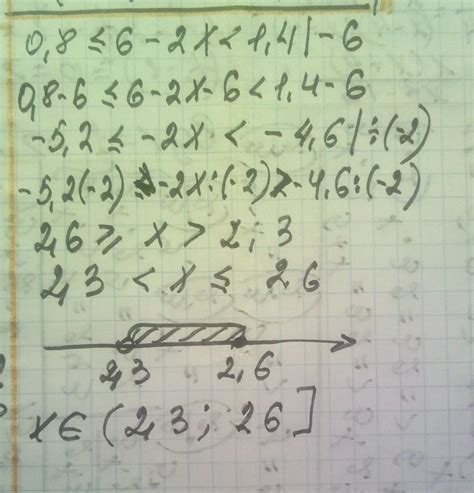 0,8 ≤ 6 - 2x < 1,4 | - 6
0,8 - 6 ≤ 6 - 2x - 6 < 1,4 - 6
-5,2 ≤ -2x < -4,6 | ÷(-2)
-5,2(-2) ≥ -2x:(-2) > -4,6:(-2)
2,6 ≥ x > 2,3
2,3 < x ≤ 26
2,3 2,6
x∈ (2,3; 26]